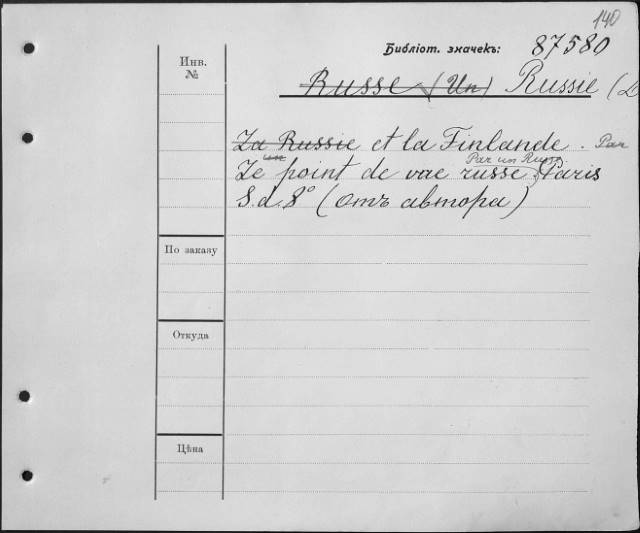 140
Библіот. значекъ: 87580
Инв. №
Russe (Un) Russie (L
La Russie et la Finlande. Par
un Par un Russe.
Le point de vue russe. Paris
S.d. 8° (отъ автора)
По заказу
Откуда
Цѣна